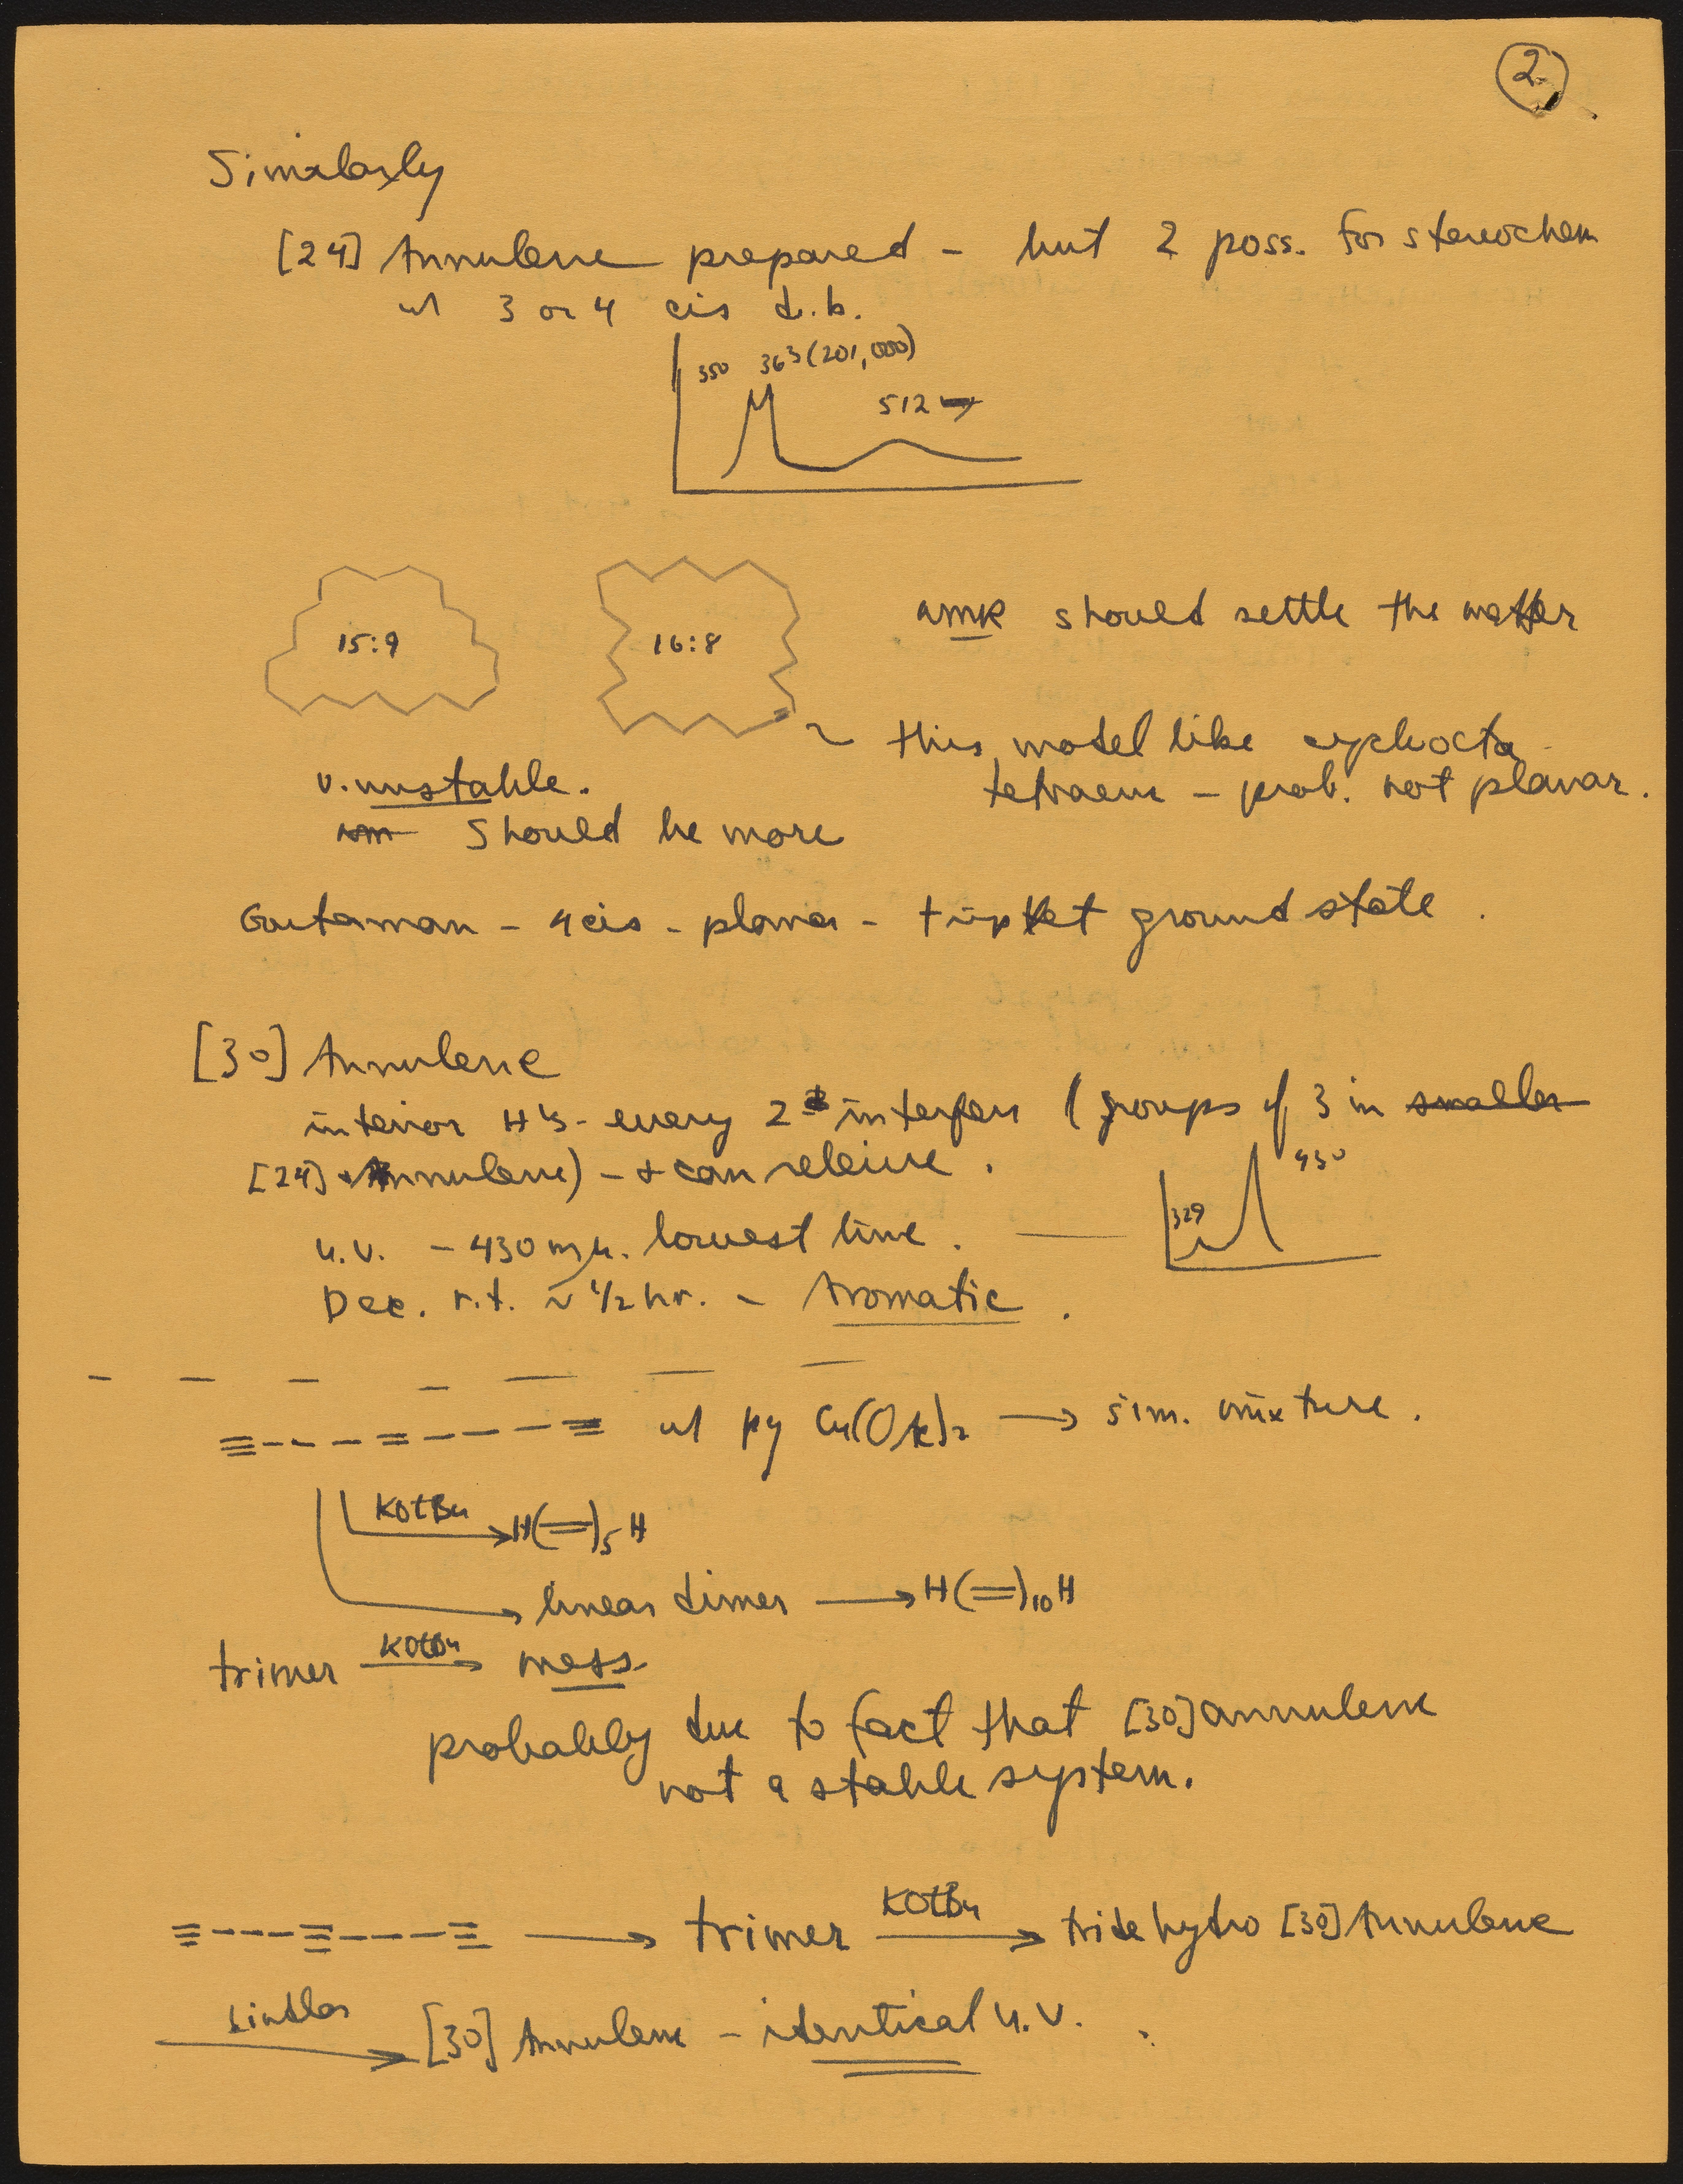 2
Similarly
[24] Annulene prepared - but 2 poss. for stereochem
w/ 3 or 4 cis d.b.
350 363 (201,000)
512
15:9
16:8
should settle the matter
this model like cycloocta
tetraene - prob. not planar.
v. unstable.
should be more
Gouterman - 4 cis - planar - triplet ground state.
[30] Annulene
interior H's - every 2 interfere (groups of 3 in smaller
[24] Annulene) - & can relieve.
430
329
u.v. - 430 mμ. lowest line.
Dec. r.t. ~ 1/2 hr. - Aromatic.
≡---=----≡ w/ py Cu(OAc)2 → sim. mixture.
KOtBu → H(=)5 H
→ linear dimer → H(=)10 H
trimer KOtBu → mess
probably due to fact that [30] annulene
not a stable system.
≡---≡---≡ → trimer KOtBu → tridehydro [30] Annulene
Lindlar → [30] Annulene - identical u.v.